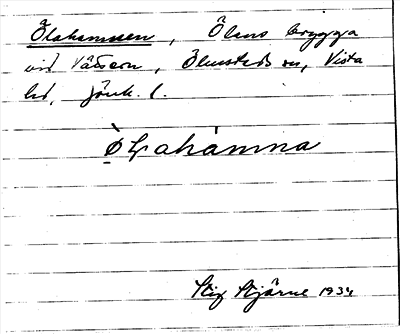 Ölahamnen, Ölens brygga
vid Vättern, Ölmstads sn, Vista
hd, Jönk. l.
Ò̤Lahàmna
Stig Stjärne 1934